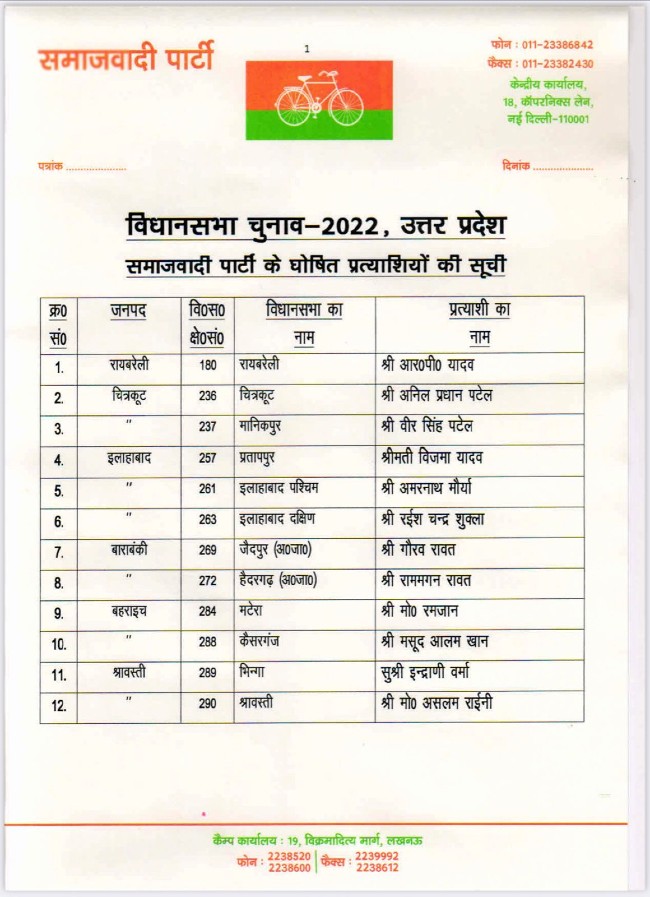 समाजवादी पार्टी
1
फोन : 011-23386842
फैक्स : 011-23382430
केन्द्रीय कार्यालय,
18, कॉपरनिक्स लेन,
नई दिल्ली-110001
पत्रांक ....................
दिनांक ....................
विधानसभा चुनाव–2022, उत्तर प्रदेश
समाजवादी पार्टी के घोषित प्रत्याशियों की सूची
क्र० सं० जनपद वि०स० क्षे०सं० विधानसभा का नाम प्रत्याशी का नाम
1. रायबरेली 180 रायबरेली श्री आर०पी० यादव
2. चित्रकूट 236 चित्रकूट श्री अनिल प्रधान पटेल
3. " 237 मानिकपुर श्री वीर सिंह पटेल
4. इलाहाबाद 257 प्रतापपुर श्रीमती विजमा यादव
5. " 261 इलाहाबाद पश्चिम श्री अमरनाथ मौर्या
6. " 263 इलाहाबाद दक्षिण श्री रईश चन्द्र शुक्ला
7. बाराबंकी 269 जैदपुर (अ०जा०) श्री गौरव रावत
8. " 272 हैदरगढ़ (अ०जा०) श्री राममगन रावत
9. बहराइच 284 मटेरा श्री मो० रमजान
10. " 288 कैसरगंज श्री मसूद आलम खान
11. श्रावस्ती 289 भिन्गा सुश्री इन्द्राणी वर्मा
12. " 290 श्रावस्ती श्री मो० असलम राईनी
कैम्प कार्यालय : 19, विक्रमादित्य मार्ग, लखनऊ
फोन : 2238520 2238600 फैक्स : 2239992 2238612